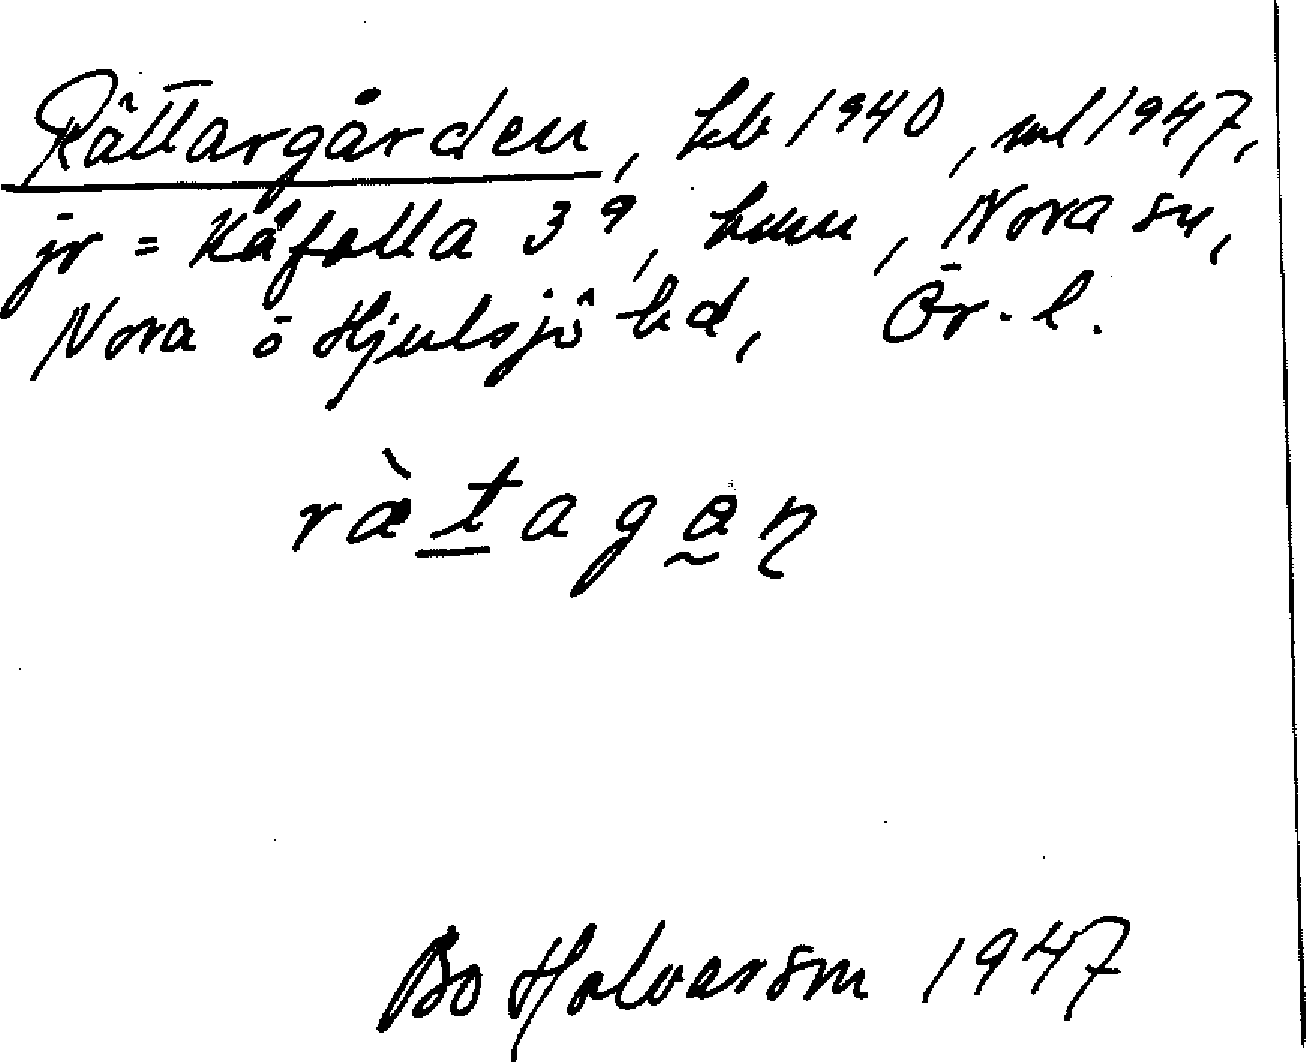 Rättargården, kb 1940, ml 1947,
jr = Kåfalla 3⁹, hmn, Nora sn,
Nora o Hjulsjö bd, Ör. l.
rætagan
Bo Halvarson 1947